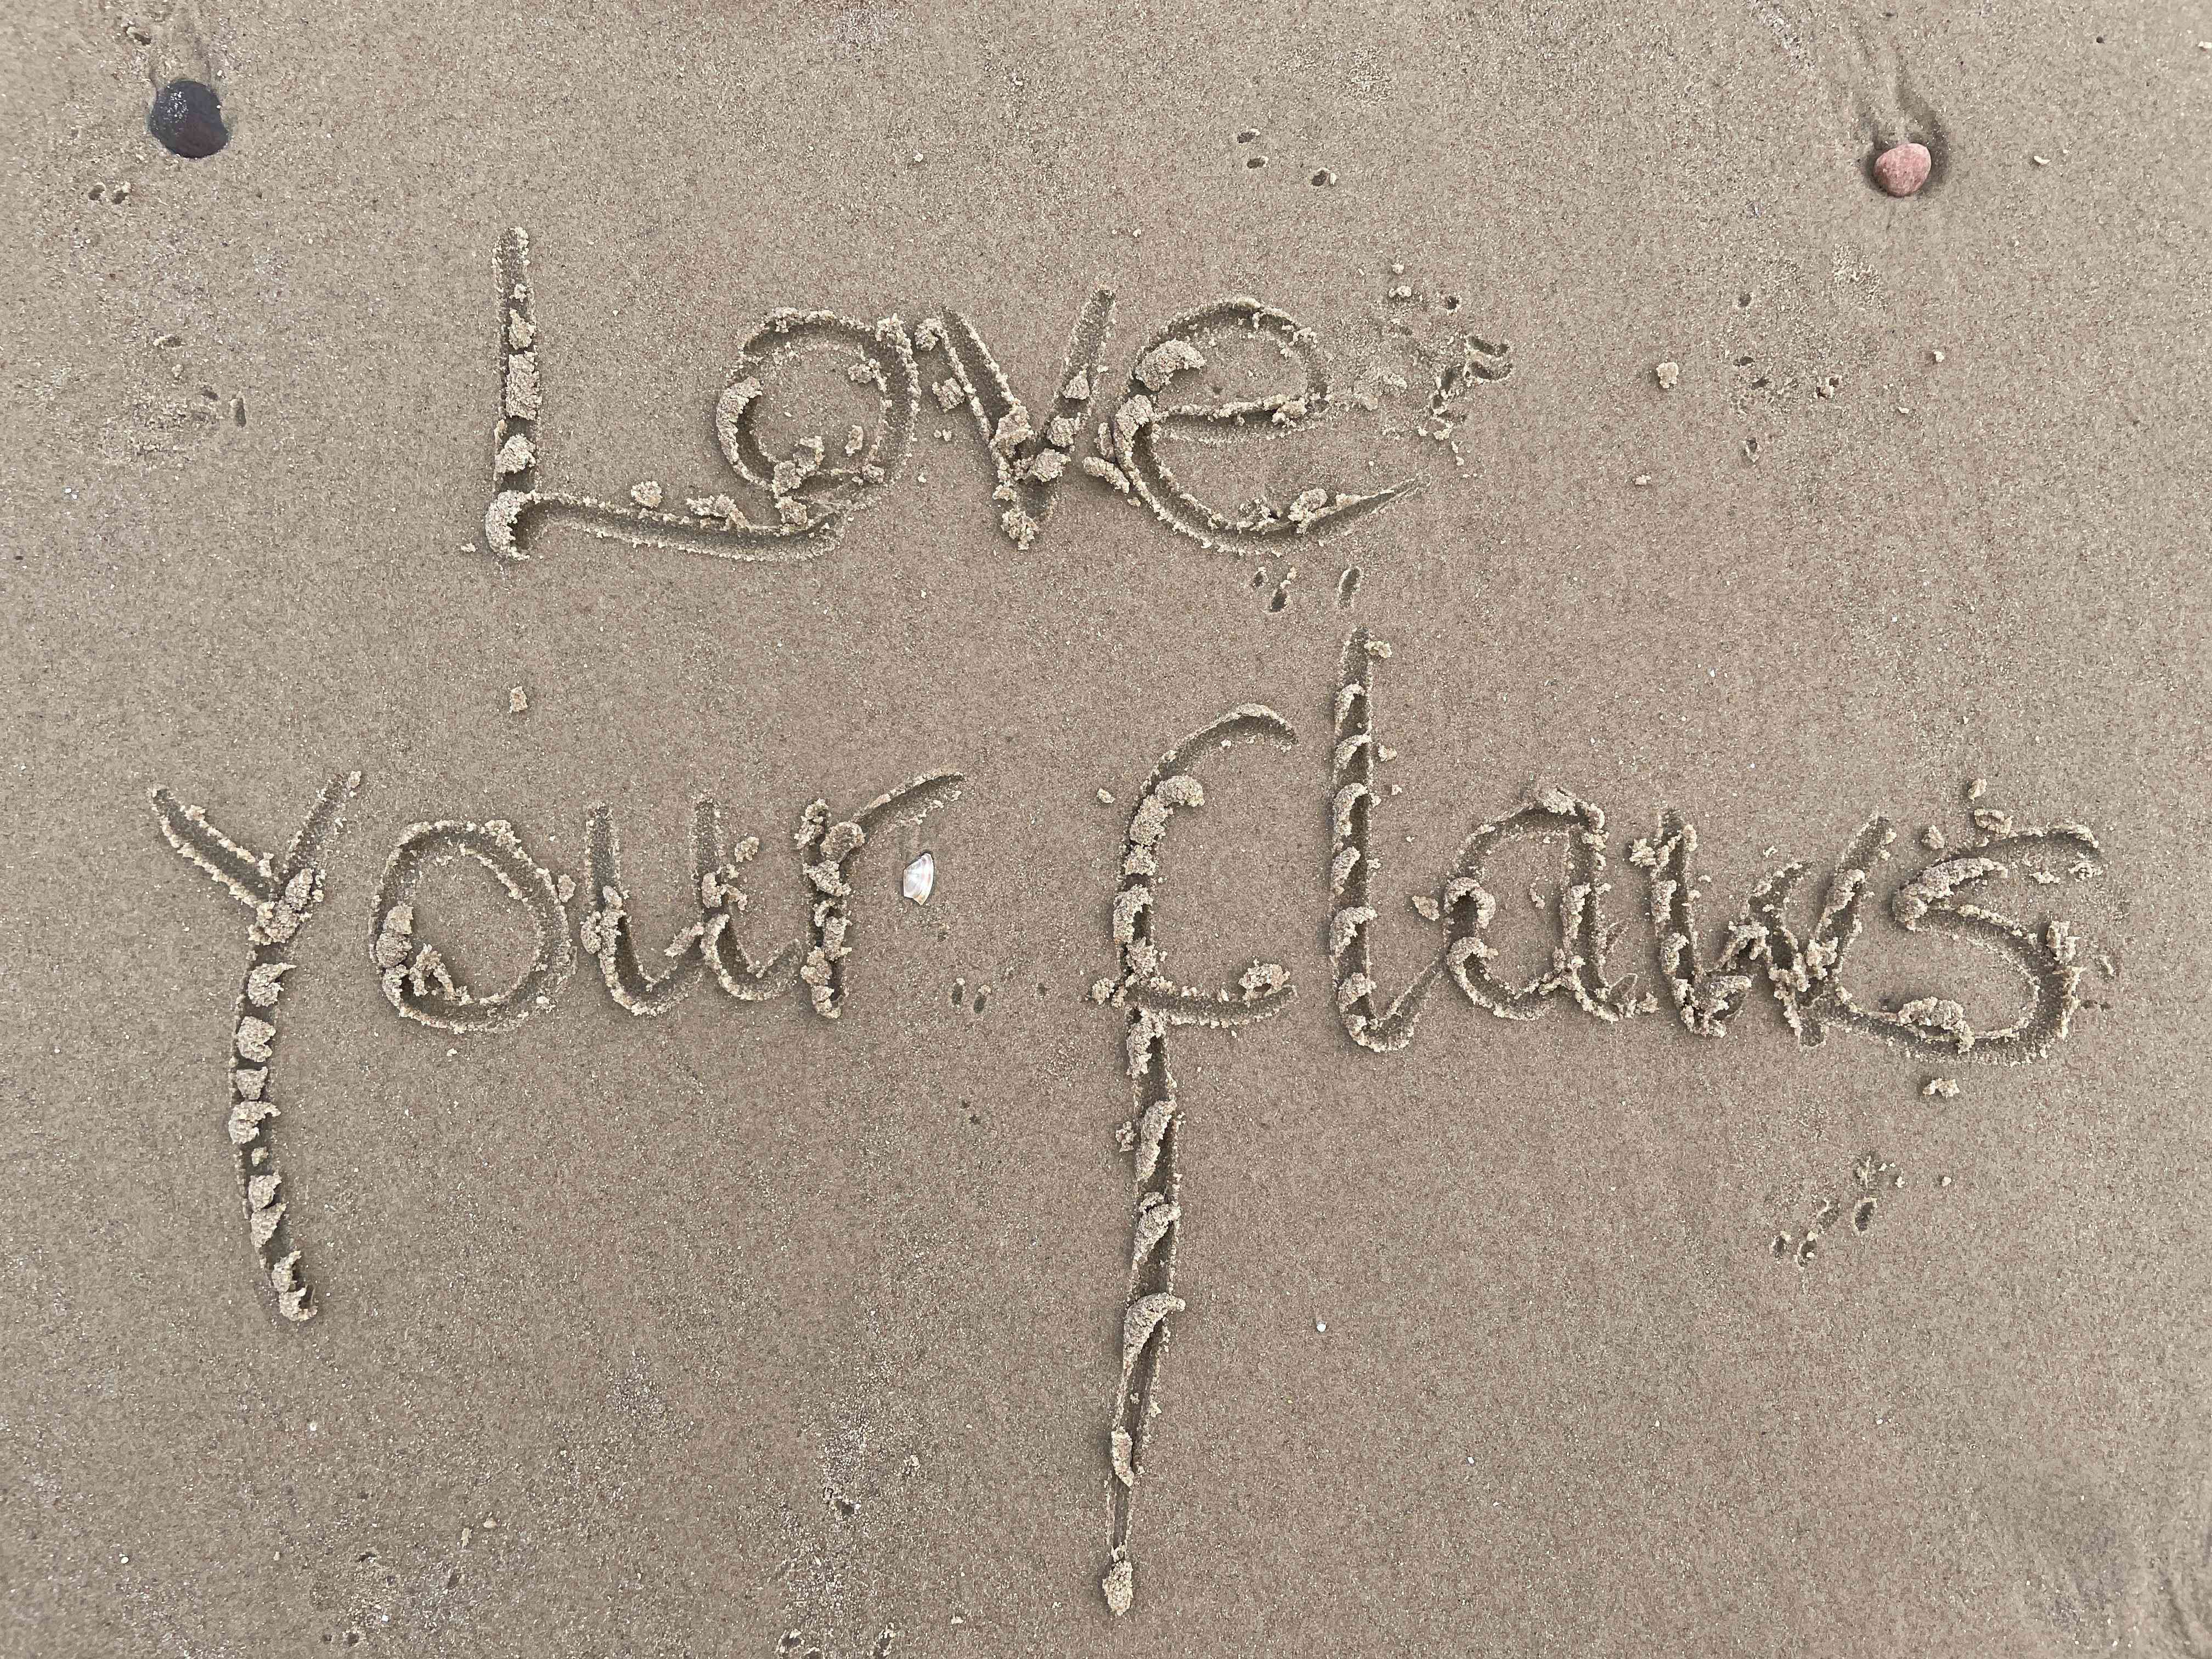 Love
Your flaws